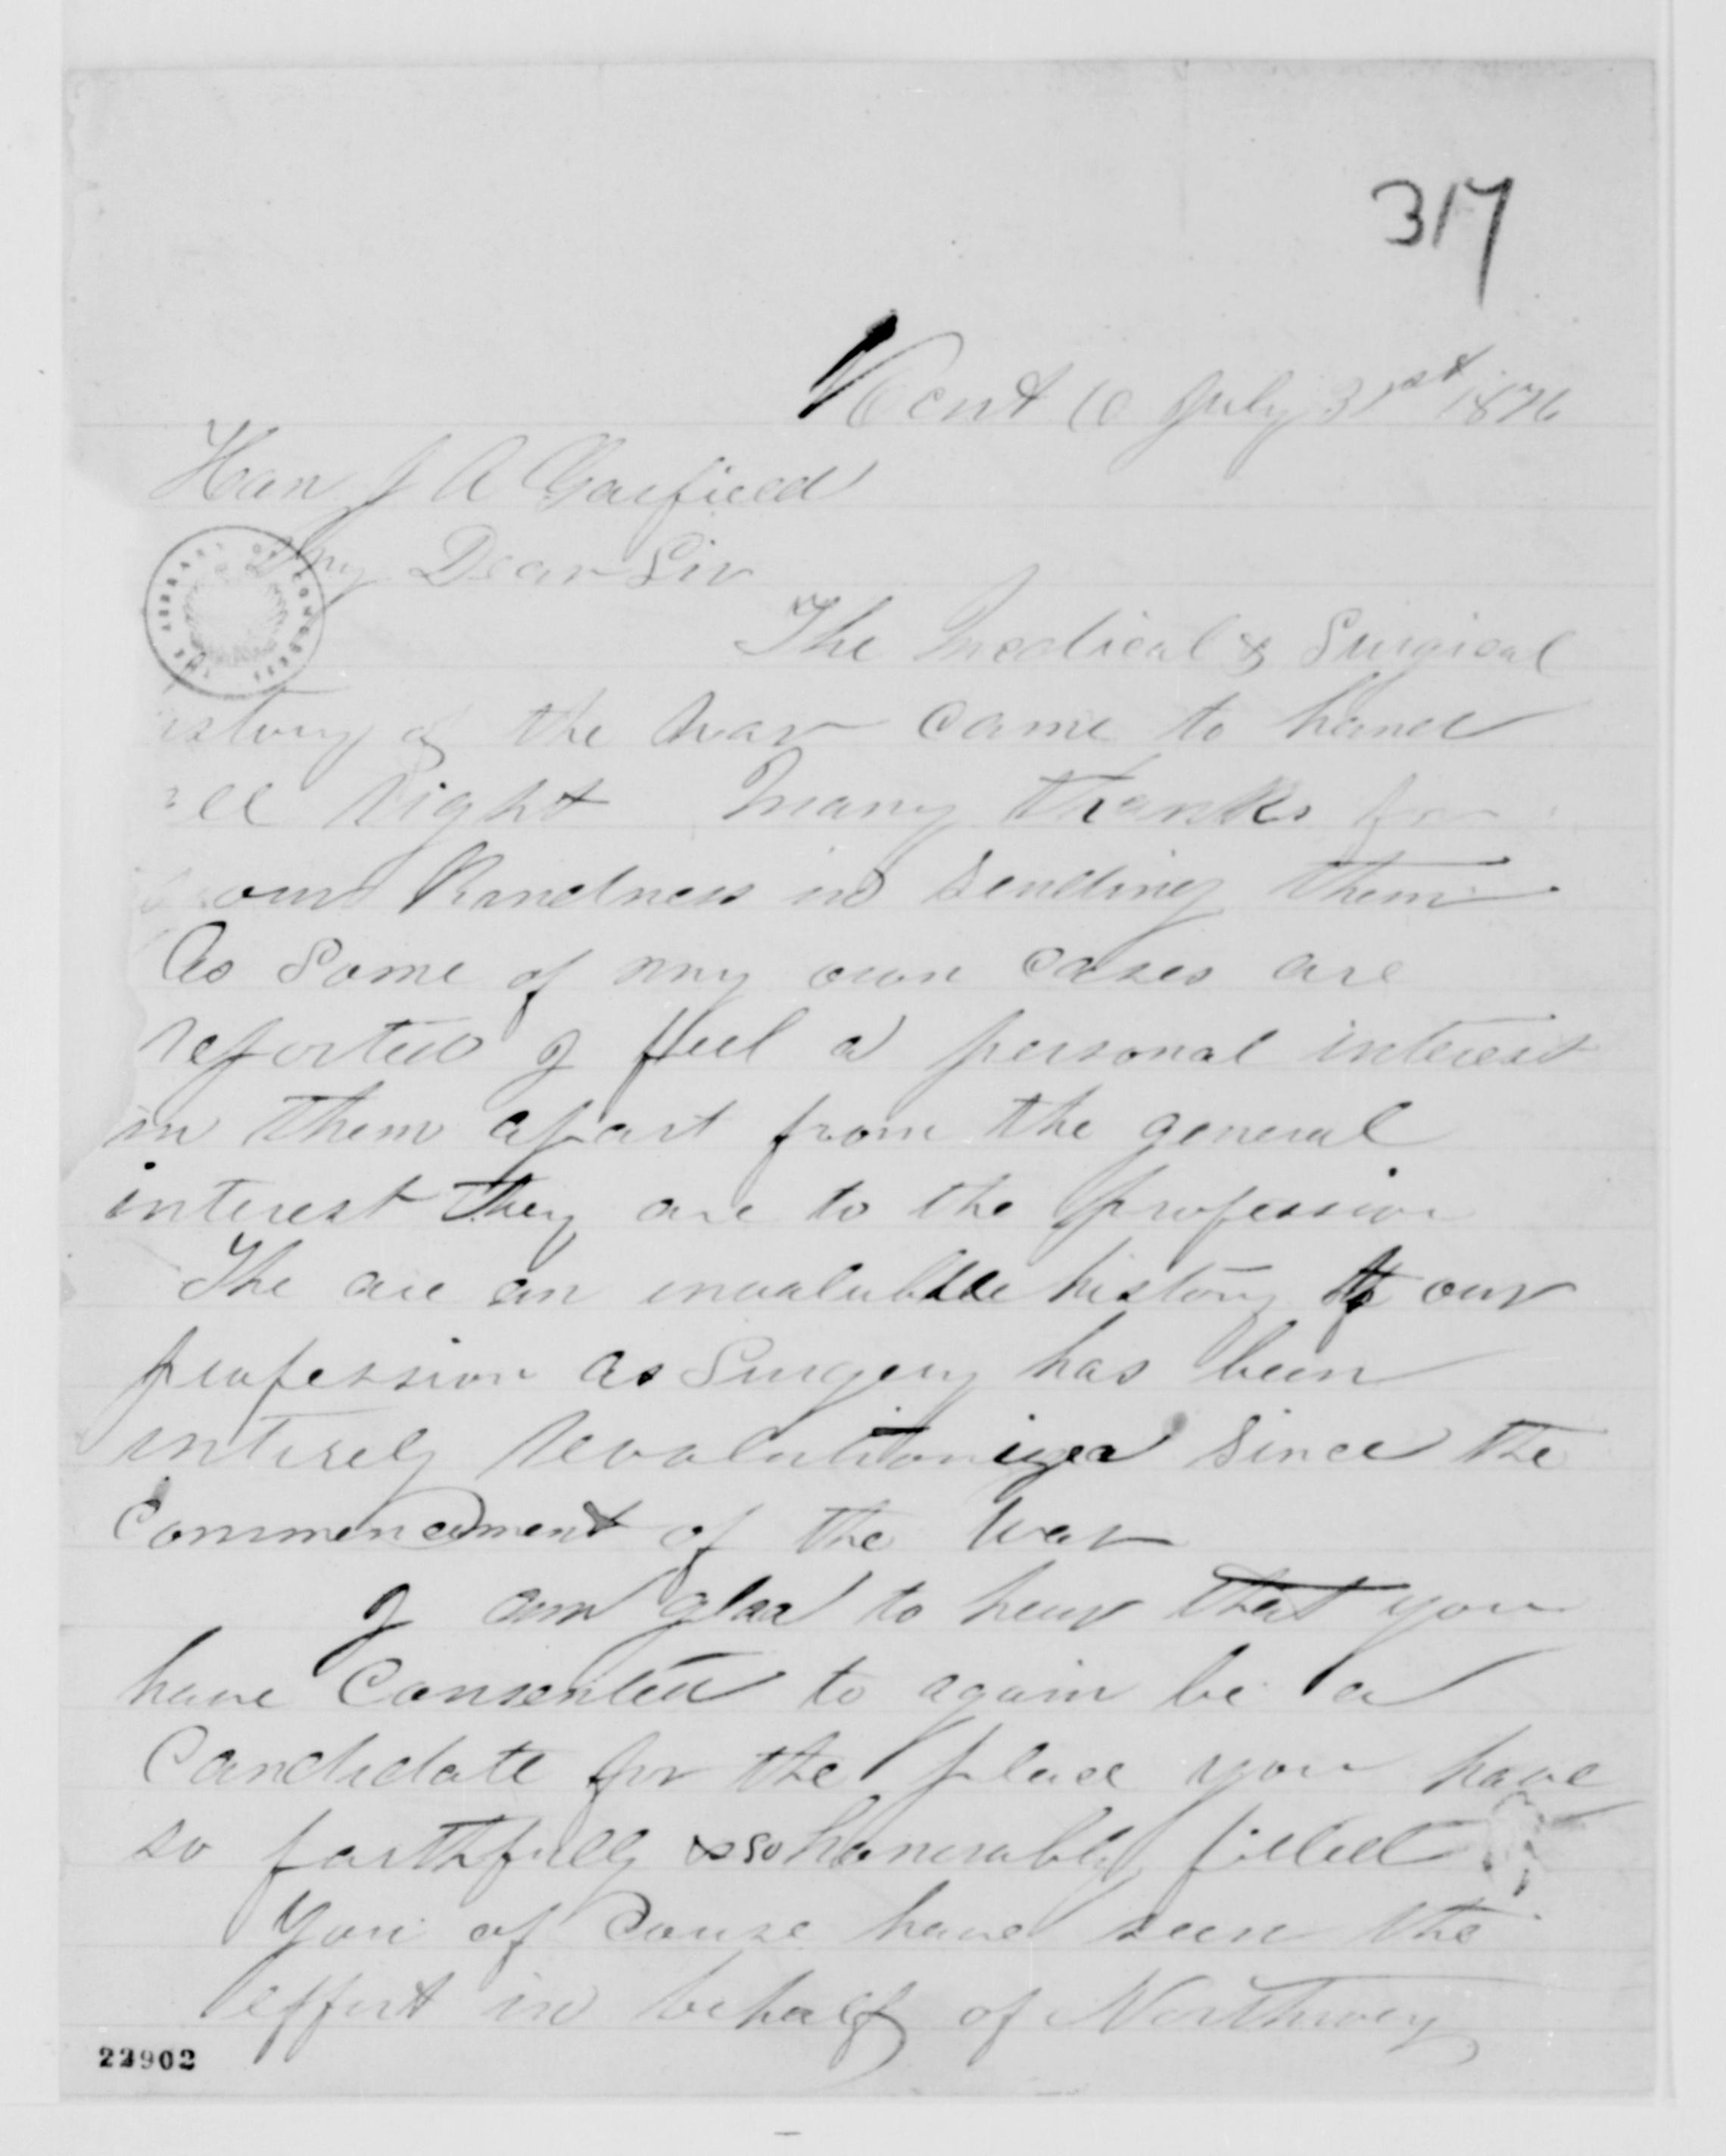 317
Kent O July 31st 1876
Hon J A Garfield
My Dear Sir
THE LIBRARY OF CONGRESS
The Medical & Surgical
istory of the War came to hand
all right Many thanks for
your kindness in sending them
As Some of my own cases are
reported I feel a personal interest
in them apart from the general
interest they are to the profession
The are an invaluable history to our
profession as Surgery has been
entirely revolutionized since the
Commencement of the War
I am glad to hear that you
have Consented to again be a
Candidate for the place you have
so faithfully & so honorably filled
You of Course have seen the
effort in behalf of Northway
22902